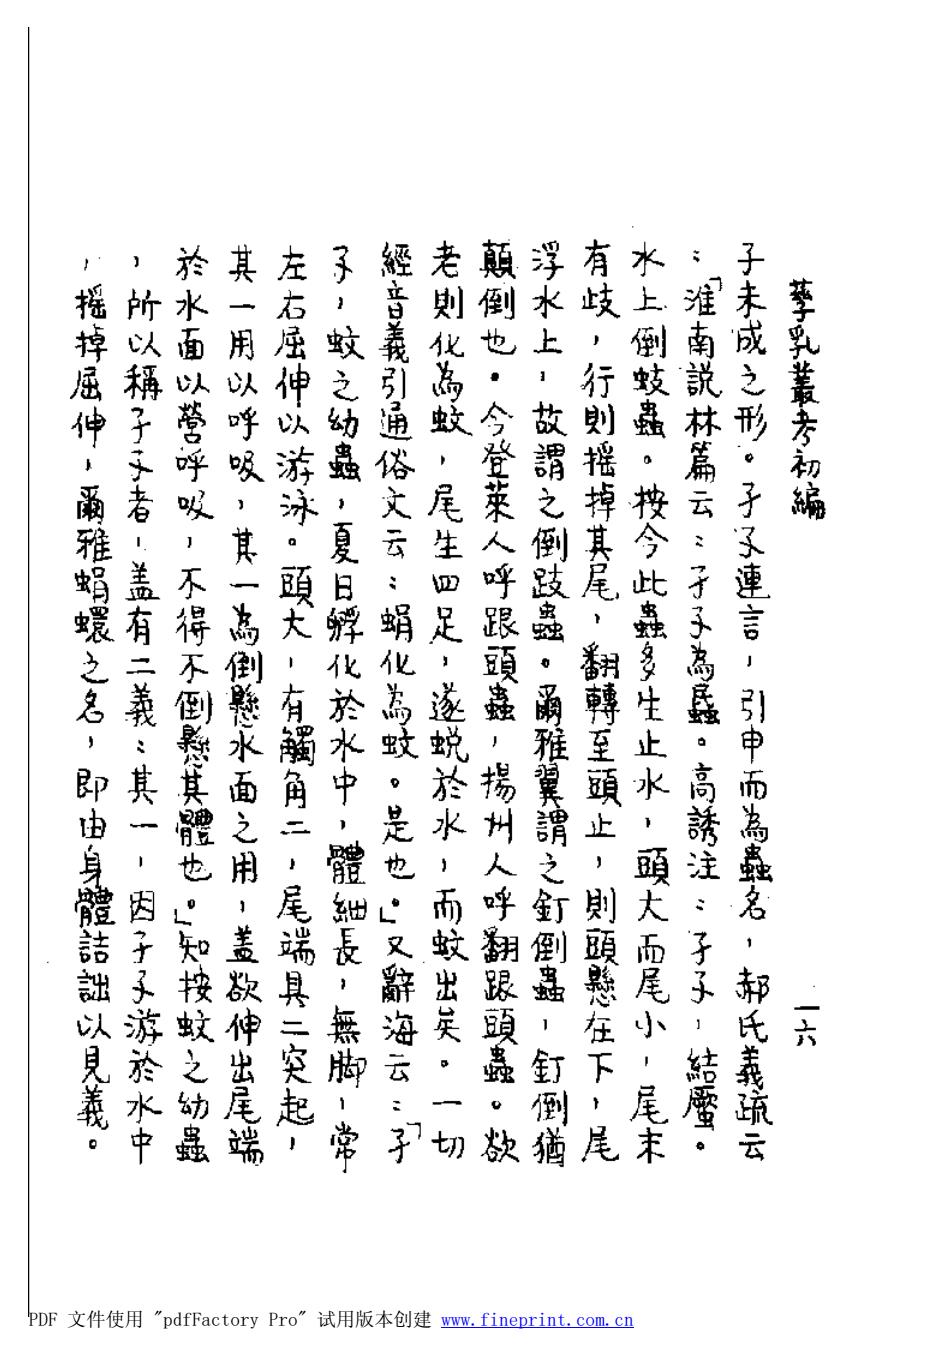 孳乳叢考初編
一六
子未成之形。孑孓連言，引申而為蟲名，郝氏義疏云
：「淮南說林篇云：孑孓為蟁。高誘注：孑孓，結蟨。
水上倒蛂蟲。按今此蟲多生止水，頭大而尾小，尾末
有歧，行則摇掉其尾，翻轉至頭止，則頭懸在下，尾
浮水上，故謂之倒跂蟲。爾雅翼謂之釘倒蟲，釘倒猶
顛倒也。今登萊人呼跟頭蟲，揚州人呼翻跟頭蟲。欲
老則化為蚊，尾生四足，遂蜕於水，而蚊出矣。一切
經音義引通俗文云：蜎化為蚊。是也。」又辭海云：「孑
孓，蚊之幼蟲，夏日孵化於水中，體細長，無脚，常
左右屈伸以游泳。頭大，有觸角二，尾端具二突起，
其一用以呼吸，其一為倒懸水面之用，盖欲伸出尾端
於水面以營呼吸，不得不倒懸其體也。」知按蚊之幼蟲
，所以稱孑孓者，盖有二義：其一，因孑孓游於水中
，摇掉屈伸，爾雅蜎蠉之名，即由身體詰詘以見義。
PDF 文件使用 "pdfFactory Pro" 试用版本创建 www.fineprint.com.cn